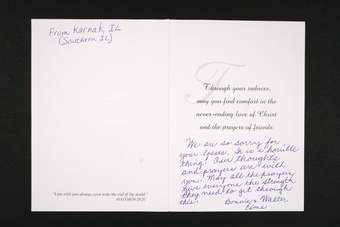 From Karnak, IL
(Southern IL)
"I am with you always, even unto the end of the world."
MATTHEW 28:20
T
Through your sadness,
may you find comfort in the
never-ending love of Christ
and the prayers of friends
We are so sorry for
your losses. It is a horrible
thing! Our thoughts
and prayers are with
you. May all the prayers
give everyone the strength
they need to get through
this.
Bonnie & Walter